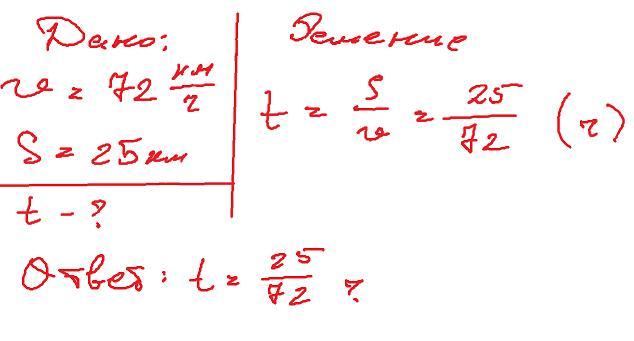 Дано:
v = 72 км/ч
S = 25 км
t - ?
Решение
t = S/v = 25/72 (ч)
Ответ: t = 25/72 ч